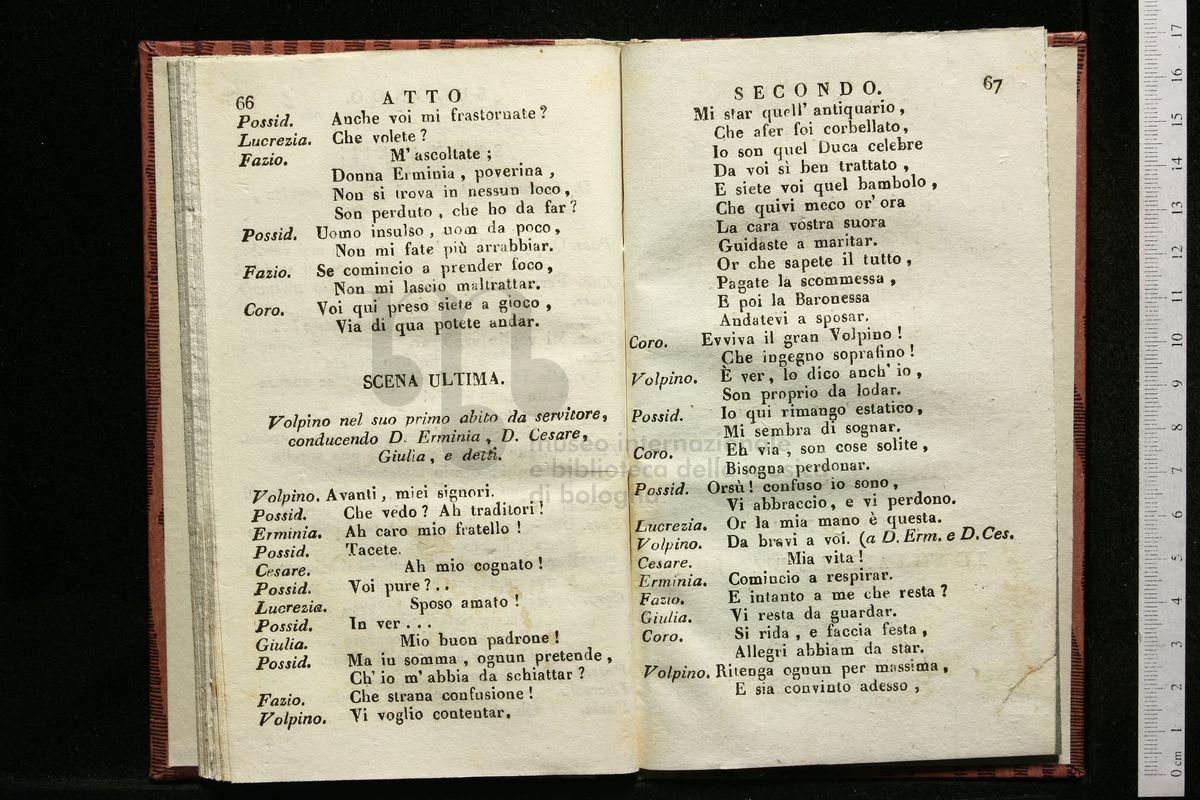 66
ATTO
Possid. Anche voi mi frastornate?
Lucrezia. Che volete?
Fazio. M' ascoltate;
Donna Erminia, poverina,
Non si trova in nessun loco,
Son perduto, che ho da far?
Possid. Uomo insulso, uom da poco,
Non mi fate più arrabbiar.
Fazio. Se comincio a prender foco,
Non mi lascio maltrattar.
Coro. Voi qui preso siete a gioco,
Via di qua potete andar.
SCENA ULTIMA.
Volpino nel suo primo abito da servitore,
conducendo D. Erminia, D. Cesare,
Giulia, e detti.
Volpino. Avanti, miei signori.
Possid. Che vedo? Ah traditori!
Erminia. Ah caro mio fratello!
Possid. Tacete.
Cesare. Ah mio cognato!
Possid. Voi pure?..
Lucrezia. Sposo amato!
Possid. In ver...
Giulia. Mio buon padrone!
Possid. Ma in somma, ognun pretende,
Ch' io m' abbia da schiattar?
Fazio. Che strana confusione!
Volpino. Vi voglio contentar.
SECONDO.
67
Mi star quell' antiquario,
Che afer foi corbellato,
Io son quel Duca celebre
Da voi sì ben trattato,
E siete voi quel bambolo,
Che quivi meco or' ora
La cara vostra suora
Guidaste a maritar.
Or che sapete il tutto,
Pagate la scommessa,
E poi la Baronessa
Andatevi a sposar.
Coro. Evviva il gran Volpino!
Che ingegno soprafino!
Volpino. È ver, lo dico anch' io,
Son proprio da lodar.
Possid. Io qui rimango estatico,
Mi sembra di sognar.
Coro. Eh via, son cose solite,
Bisogna perdonar.
Possid. Orsù! confuso io sono,
Vi abbraccio, e vi perdono.
Lucrezia. Or la mia mano è questa.
Volpino. Da bravi a voi. (a D. Erm. e D. Ces.
Cesare. Mia vita!
Erminia. Comincio a respirar.
Fazio. E intanto a me che resta?
Giulia. Vi resta da guardar.
Coro. Si rida, e faccia festa,
Allegri abbiam da star.
Volpino. Ritenga ognun per massima,
E sia convinto adesso,
museo internazionale
e biblioteca della musica
di bologna
0 cm 1 2 3 4 5 6 7 8 9 10 11 12 13 14 15 16 17